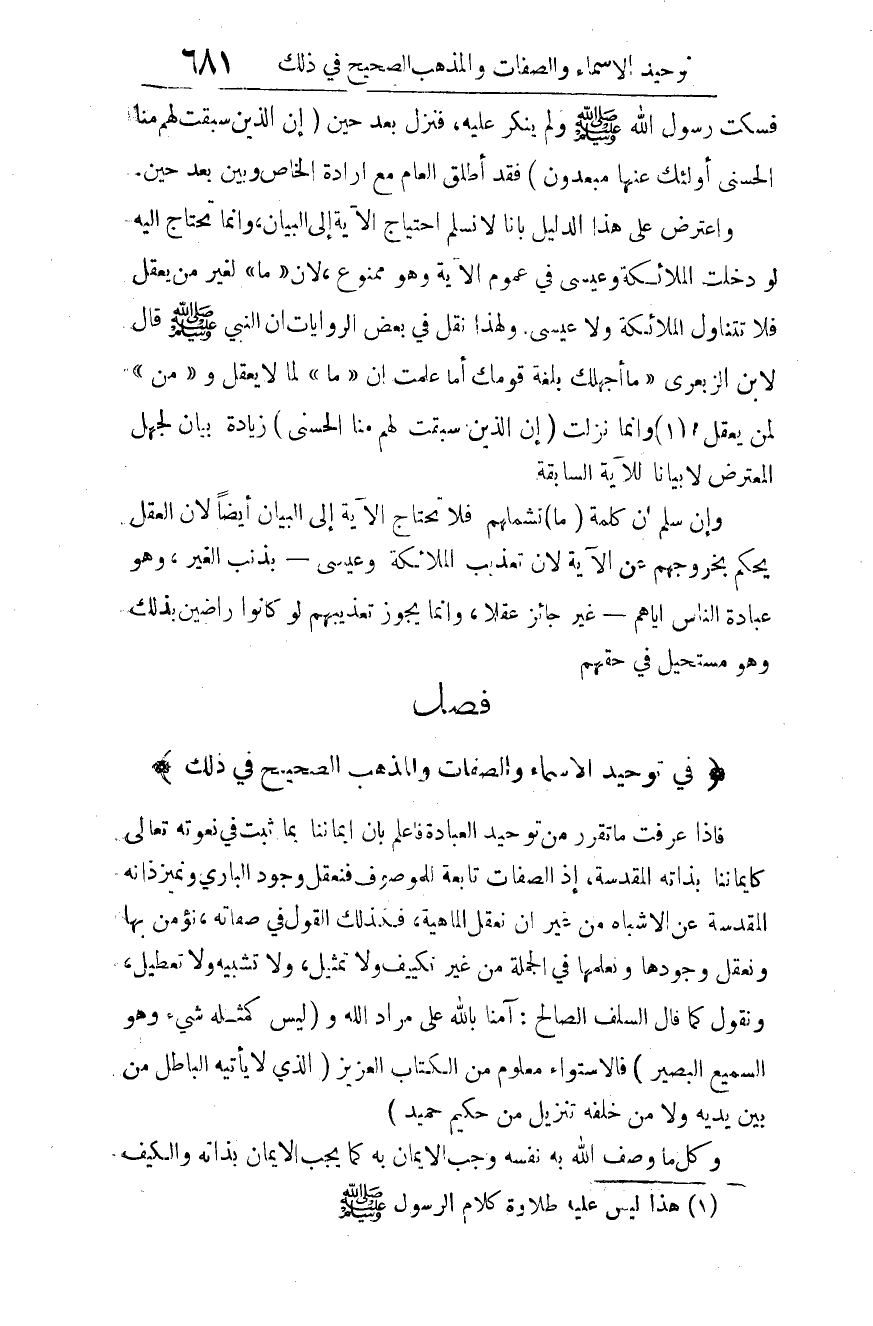 توحيد الاسماء والصفات والمذهب الصحيح في ذلك ٦٨١
فسكت رسول الله ﷺ ولم ينكر عليه، فنزل بعد حين ( إن الذين سبقت لهم منا
الحسنى أولئك عنها مبعدون ) فقد أطلق العام مع ارادة الخاص وبين بعد حين.
واعترض على هذا الدليل بانا لا نسلم احتياج الآية إلى البيان، وانما تحتاج اليه
لو دخلت الملائكة وعيسى في عموم الآية وهو ممنوع، لان « ما» لغير من يعقل
فلا تتناول الملائكة ولا عيسى. ولهذا نقل في بعض الروايات ان النبي ﷺ قال
لابن الزبعرى « ما أجهلك بلغة قومك أما علمت ان « ما » لما لا يعقل و « من »
لمن يعقل ؟ (١) وانما نزلت ( إن الذين سبقت لهم منا الحسنى ) زيادة بيان لجهل
المعترض لا بيانا للآية السابقة
وإن سلم أن كلمة ( ما) تشملهم فلا تحتاج الآية إلى البيان أيضاً لان العقل
يحكم بخروجهم عن الآية لان تعذيب الملائكة وعيسى — بذنب الغير ، وهو
عبادة الناس اياهم — غير جائز عقلا ، وانما يجوز تعذيبهم لو كانوا راضين بذلك
وهو مستحيل في حقهم
فصل
﴿ في توحيد الاسماء والصفات والمذهب الصحيح في ذلك ﴾
فاذا عرفت ما تقرر من توحيد العبادة فاعلم بان ايماننا بما ثبت في نعوته تعالى
كايماننا بذاته المقدسة، إذ الصفات تابعة للموصوف فنعقل وجود الباري ونميز ذاته
المقدسة عن الاشباه من غير ان نعقل الماهية، فكذلك القول في صفاته ، نؤمن بها
ونعقل وجودها ونعلمها في الجملة من غير تكييف ولا تمثيل، ولا تشبيه ولا تعطيل،
ونقول كما قال السلف الصالح : آمنا بالله على مراد الله و ( ليس كمثله شيء وهو
السميع البصير ) فالاستواء معلوم من الكتاب العزيز ( الذي لا يأتيه الباطل من
بين يديه ولا من خلفه تنزيل من حكيم حميد )
وكل ما وصف الله به نفسه وجب الايمان به كما يجب الايمان بذاته والكيف
(١) هذا ليس عليه طلاوة كلام الرسول ﷺ